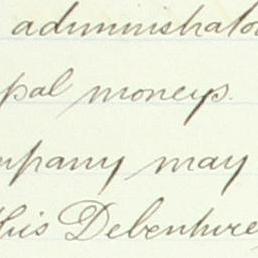 administrato
pal moneys.
mpany may
this Debenture